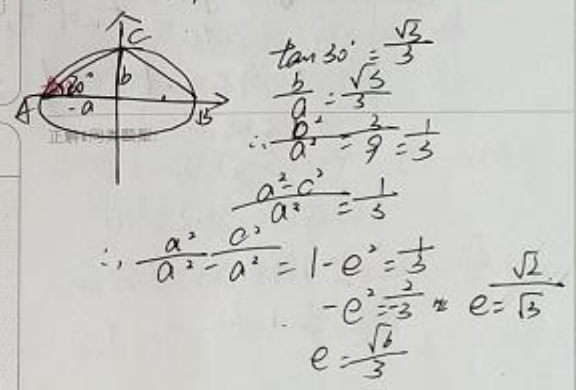 C
30°
b
A
-a
B
tan30° = √3/3
b/a = √3/3
∴ b²/a² = 3/9 = 1/3
a²-c²/a² = 1/3
∴, a²/a² - c²/a² = 1 - e² = 1/3
-e² = -2/3 e = √2/√3
e = √6/3